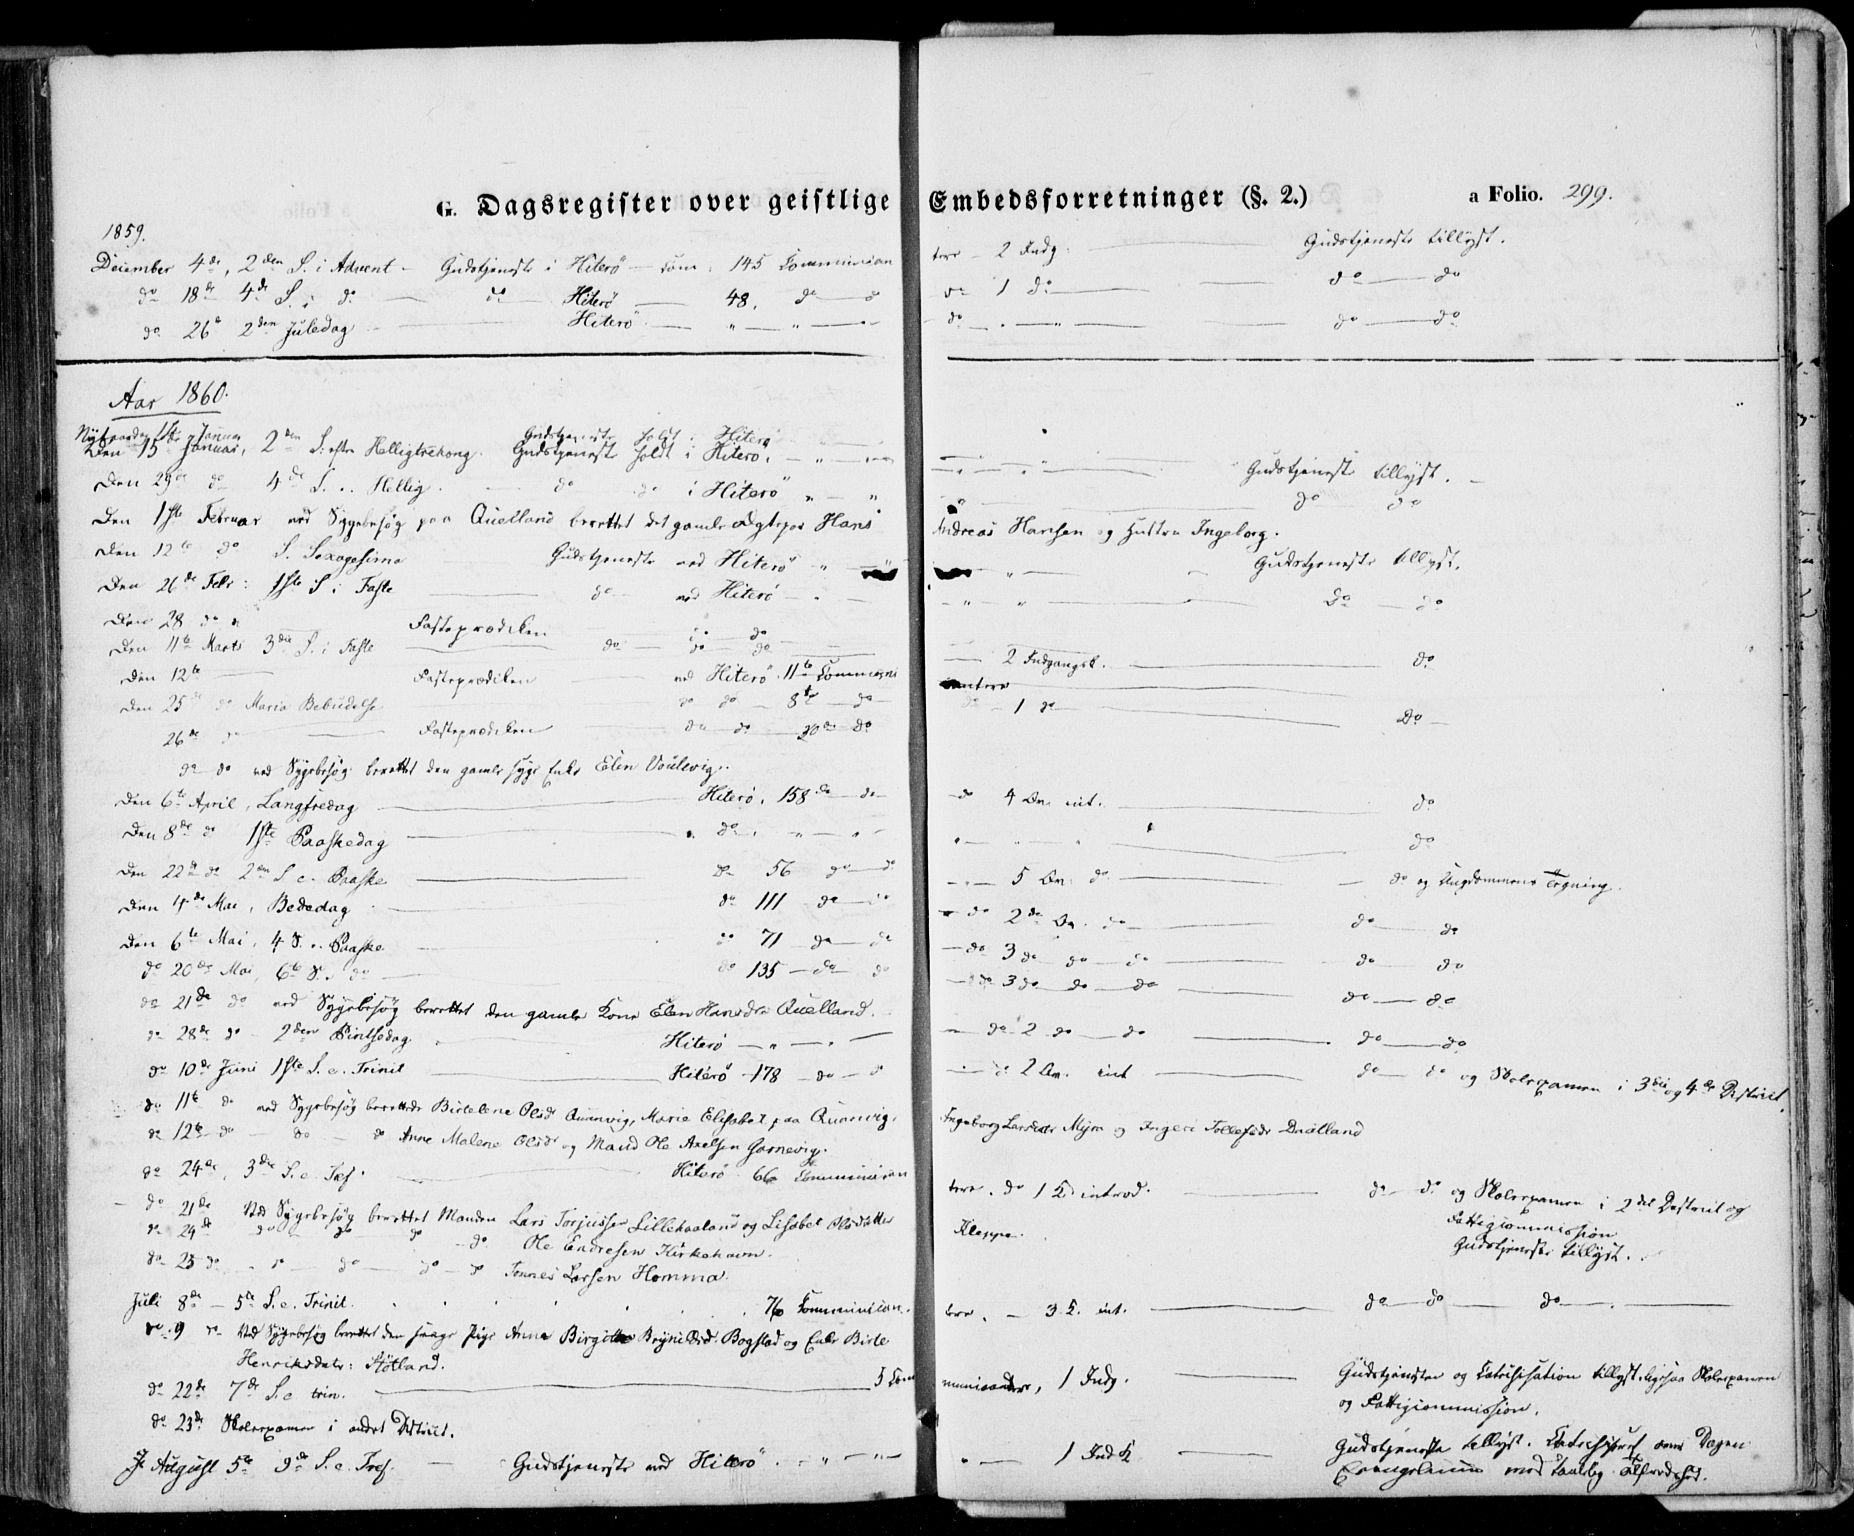 G. Dagsregister over geistlige Embedsforretninger (§. 2.) a Folio. 299.
1859.
December 4de, 2den S. i Advent - Gudstjeneste i Hiterö - Com: 145 Communican tere - 2 Indg. Gudstjeneste tillyst.
do 18de 4de S. i do do Hiterö 48. do do do 1 do do do
do 26 2den Juledag Hiterö " " do " do do
Aar 1860.
Nytaarsdag 1ste Januar Gudstjeneste holdt i Hiterö
Den 15 Januar, 2den S. efter Helligtrekong. Gudstjeneste holdt i Hiterö. " Gudstjeneste tillyst.
Den 29de do 4de S. e. Hellig. do do i Hiterö " " do do
Den 1ste Februar ved Sygebesög paa Quelland berettet det gamle Ægtepar Hans Andreas Hansen og Hustru Ingeborg.
Den 12te do S. Sexagesima Gudstjeneste ved Hiterö " " Gudstjeneste tillyst.
Den 26de Febr: 1ste S i Faste do ved Hiterö " " do do
Den 28 do Fasteprædiken do
Den 11te Marts 3die S. i Faste do do do 2 Indgangsk. do
Den 12te Fasteprædiken ved Hiterö 11te Communi cantere
Den 25 do Maria Bebudelse do do 8te do do 1 do do
26de do Fasteprædiken do do 20de do
do do ved Sygebesög berettet den gamle syge Enke Elen
Den 6te April, Langfredag Hiterö. 158 do do do 4 Qv. int. do
Den 8de do 1ste Paaskedag do " " do
Den 22de do 2den S. e. Paaske do 56 do do 5 Qv. do do og Ungdommens Tegning.
Den 4de Mai, Bededag do 111 do do do 2 Qv. do do do
Den 6te Mai, 4 S. e. Paaske do 71 do do do 3 do do do do do
do 20de Mai, 6te S. e. do do 135 do do do 3 do do do do do
do 21de do ved Sygebesög berettet den gamle Kone Elen Hansdr Quelland.
do 28de do 2den Pintsedag. Hiterö " " do 2 do do do do
do 10de Juni 1ste S. e. Trinit Hiterö 178 do do 2 Qv. int do do og Skolexamen i 3die og 4de District.
do 11te do ved Sygebesög berettede Birtelene Olsdr Quanvig, Marie Elisabet paa Quanvig, Ingeborg Larsdatr Myra og Ingeri Tollefsdr Duatland
do 12te do do do Anne Malene Olsdr og Mand Ole Axelsen Gornevig.
do 24de, 3die S. e. Tref. Hiterö 66 Communican tere. do 1 K. introd. do do og Skolexamen i 2det District og Fattigcommission
do 21de Ved Sygebesög berettet Manden Lars Torjussen Lillehaaland og Lisabet Olsdatter Kleppe. Gudstjeneste tillyst.
do 24de do do do do Ole Endresen Kirkehavn.
do 25 do do do do Tönnes Larsen Homma.
Juli 8de 5te S. e. Trinit. 76 Communican. tere. 3 K. int. do do do
do 9 do Ved Sygebesög berettet den svage Pige Anne Birgitte Brynildsd. Bogstad og Enke Birte
Henriksdatr: Stötland.
do 22de 7de S. e trin. 5 Com municantere, 1 Indg. Gudstjenesten og Catechisation tillyst. ligesaa Skolexamen
og Fattigcommission.
do 23de Skolexamen i andet District.
August 5te 9de S. e. Tref. Gudstjeneste ved Hiterö " " 1 Ind K Gudstjeneste tillyst. Catechiseret over Dagen
Evangelium med taalelig Tilfredshed.